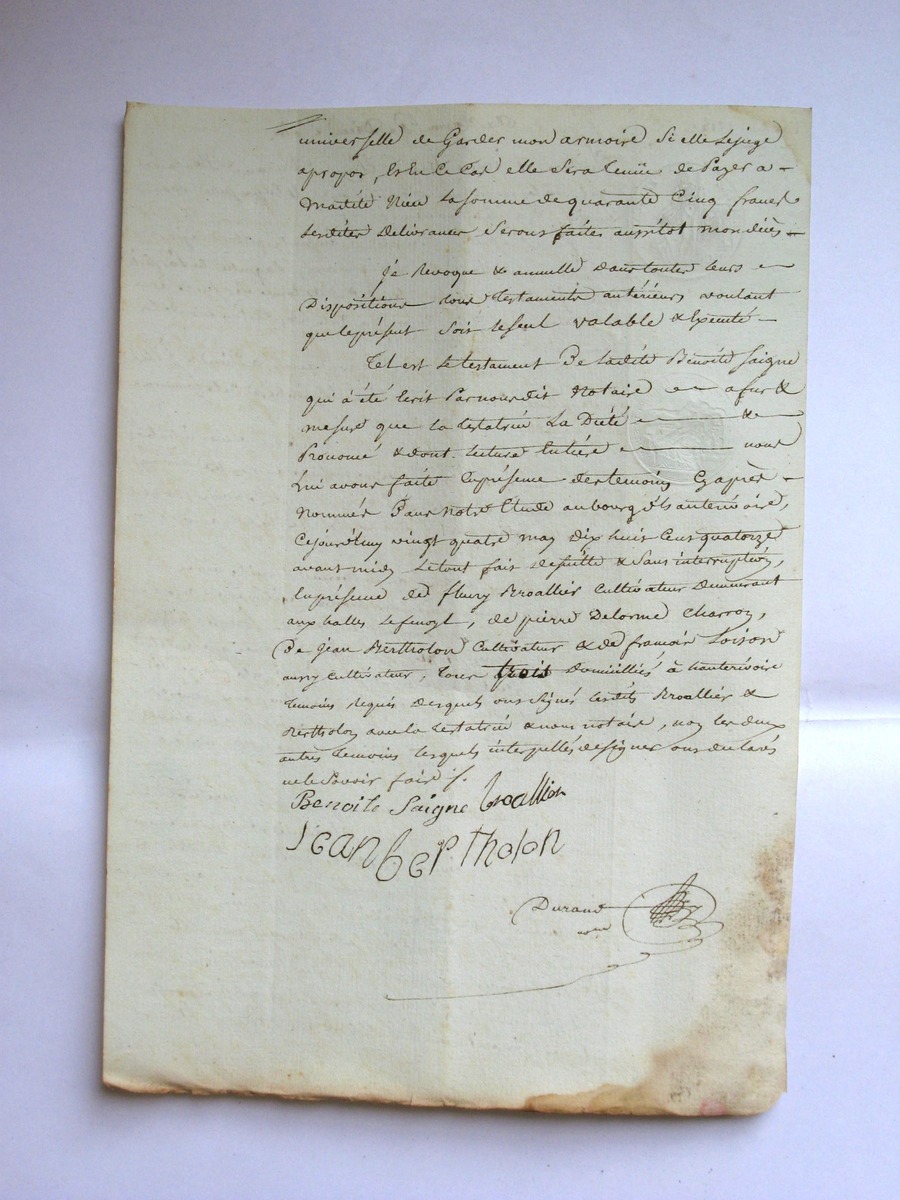 universelle de Garder mon armoire Si elle Lejuge
apropos, Et En Ce Cas elle Sera tenüe de Payer a
Maditte Niéu La somme de quarante Cinq francs
Lesdites Delivrances Serons faites aussitot mon décès
Je Revoque & annulle dans toutes leurs
Dispositions tous testaments antérieurs voulant
que leprésent Soit leseul valable & Executé
Tel est Le testament De Laditte Benoite Saigne
qui à été Ecrit Par nous dit Notaire afur &
mesure que la testatrice La Dicté &
Prononcé & dont Lecture Entière nous
Lui avons faitte Enprésence des temoins Cy après
Nommés Dans notre Etude au bourg d'hauterivoire,
Cejourd'huy vingt quatre may dix huit Cens quatorze
avant midy Letout fait desuitte & Sans interruption,
Enprésence de fleury Broallier Cultivateur Demeurant
aux halles Lefenoyl, de pierre Delorme Charron,
De jean Bertholon Cultivateur & de francois Loison
aussy Cultivateur, tous trois Domicilliés à hauterivoire
temoins requis desquels ont signés lesdits Broallier &
Bertholon avec la testatrice & nous notaire, non les deux
autres temoins lesquels interpellés designer ont declarés
nele Savoir faire /.
Benoite Saigne broallier
Jean bertholon
Durand